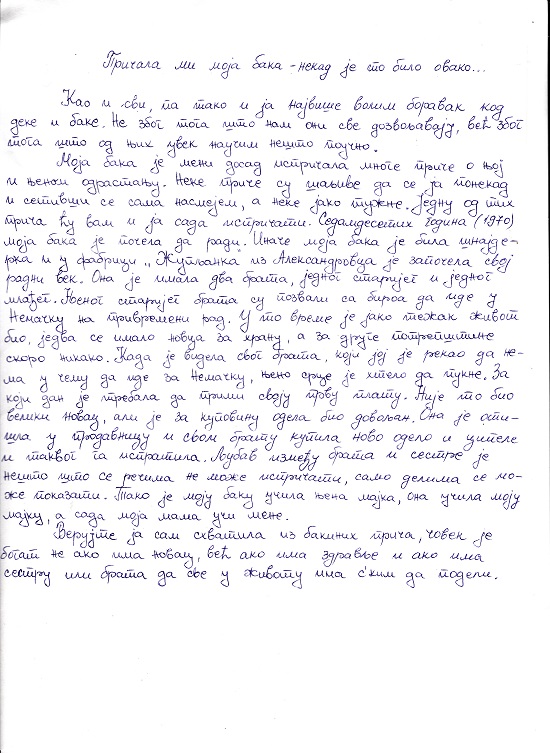 Причала ми моја бака - некад је то било овако...
Као и сви, па тако и ја највише волим боравак код
деке и баке. Не због тога што нам они све дозвољавају, већ због
тога што од њих увек научим нешто поучно.
Моја бака је мени досад испричала многе приче о њој
и њеном одрастању. Неке приче су шаљиве да се ја понекад
и сетивши се сама насмејем, а неке јако тужне. Једну од тих
прича ћу вам и ја сада испричати. Седамдесетих година (1970)
моја бака је почела да ради. Иначе моја бака је била шнајде-
рка и у фабрици „Жупљанка" из Александровца је започела свој
радни век. Она је имала два брата, једног старијег и једног
млађег. Њеног старијег брата су позвали са бироа да иде у
Немачку на привремени рад. У то време је јако тежак живот
био, једва се имало новца за храну, а за друге потрепштине
скоро никако. Када је видела свог брата, који јој је рекао да не-
ма у чему да иде за Немачку, њено срце је хтело да пукне. За
који дан је требала да прими своју прву плату. Није то био
велики новац, али је за куповину одела био довољан. Она је оти-
шла у продавницу и свом брату купила ново одело и ципеле
и таквог га испратила. Љубав између брата и сестре је
нешто што се речима не може испричати, само делима се мо-
же показати. Тако је моју баку учила њена мајка, она учила моју
мајку, а сада моја мама учи мене.
Верујте ја сам схватила из бакиних прича, човек је
богат не ако има новац, већ ако има здравље и ако има
сестру или брата да све у живату има с'ким да подели.